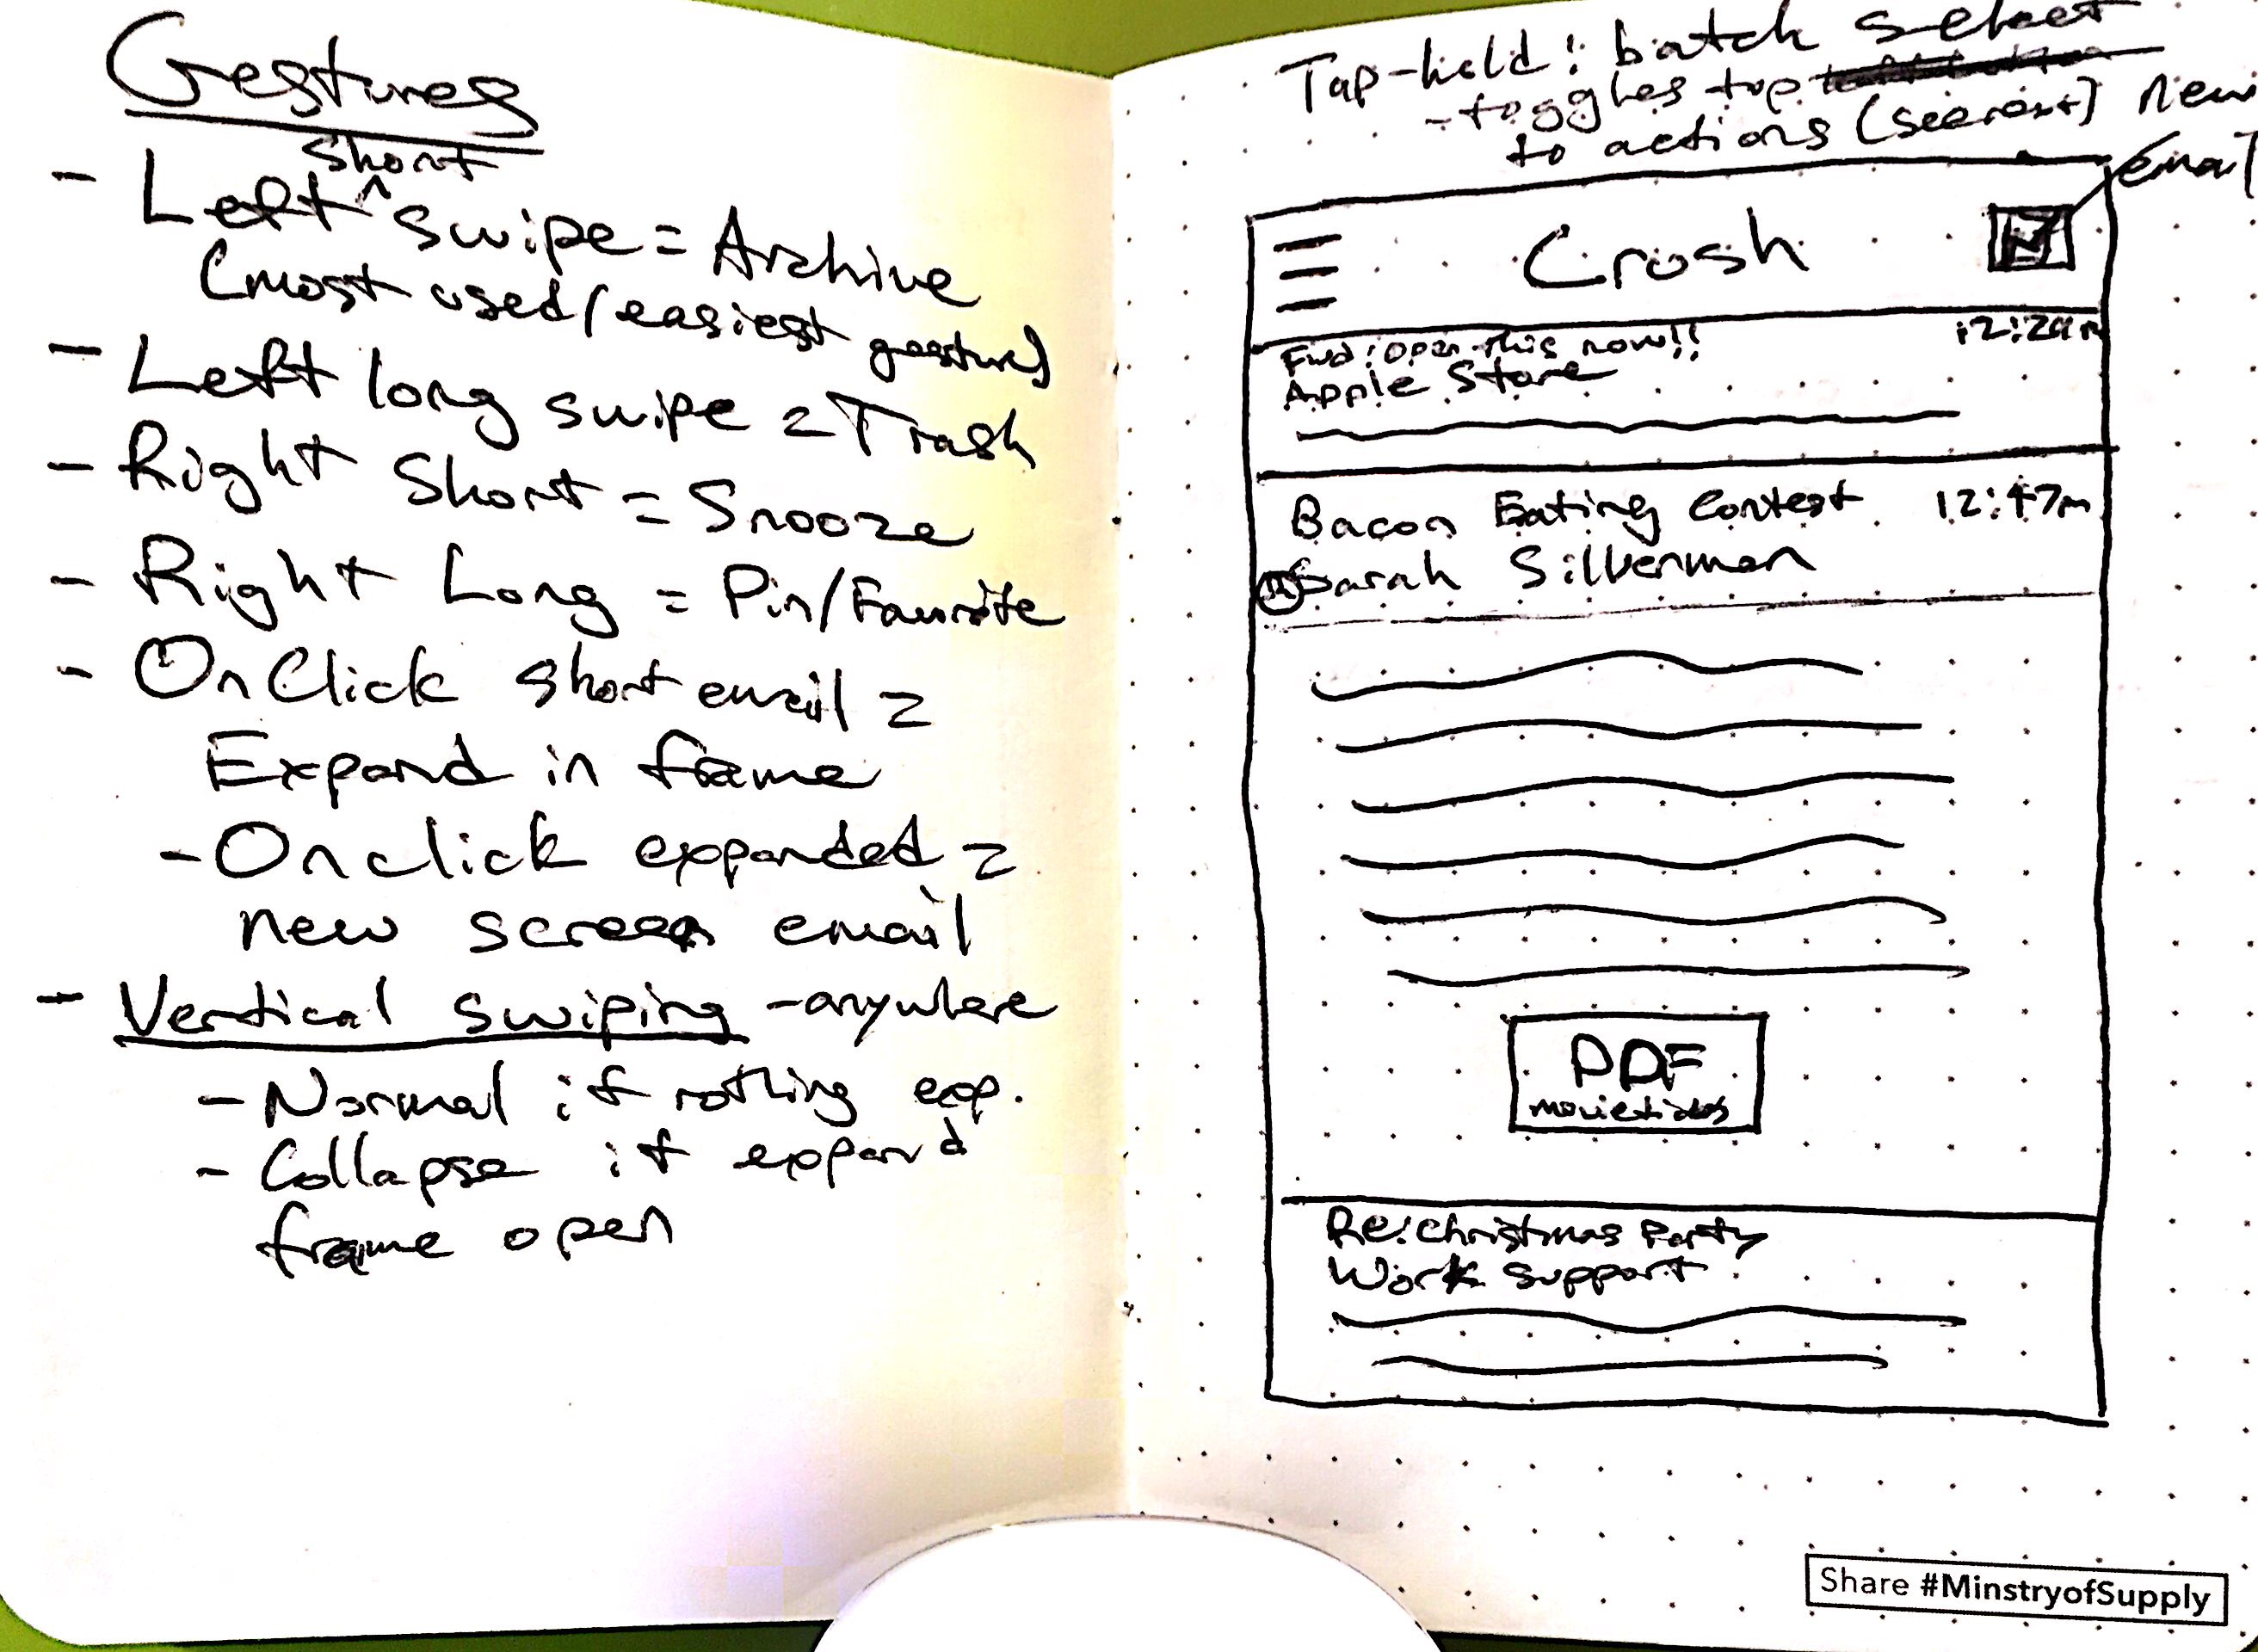 Gestures
- Left ^ short swipe = Archive
(most used/easiest gesture)
- Left long swipe = Trash
- Right Short = Snooze
- Right Long = Pin/Favorite
- OnClick short email =
Expand in frame
- Onclick expanded =
new screen email
- Vertical swiping - anywhere
- Normal if nothing exp.
- Collapse if expand
frame open
Tap-hold: batch select
- toggles top
to actions (see next)
new
email
Crush
Fwd: Open this now!!
Apple Store
Bacon Eating Contest 12:47m
Sarah Silverman
PDF
movietickets
Re: Christmas Party
Work Support
Share #MinstryofSupply